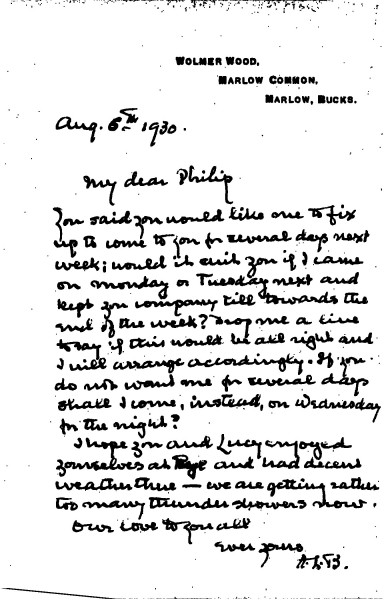 WOLMER WOOD,
MARLOW COMMON,
MARLOW, BUCKS.
Aug. 6th 1930.
My dear Philip
You said you would like me to fix
up to come to you for several days next
week; would it suit you if I came
on Monday or Tuesday next and
kept you company till towards the
end of the week? Drop me a line
to say if this would be all right and
I will arrange accordingly. If you
do not want me for several days
shall I come, instead, on Wednesday
for the night?
I hope you and Lucy enjoyed
yourselves at and had decent
weather there — we are getting rather
too many thunder showers now.
Our love to you all
Ever yours